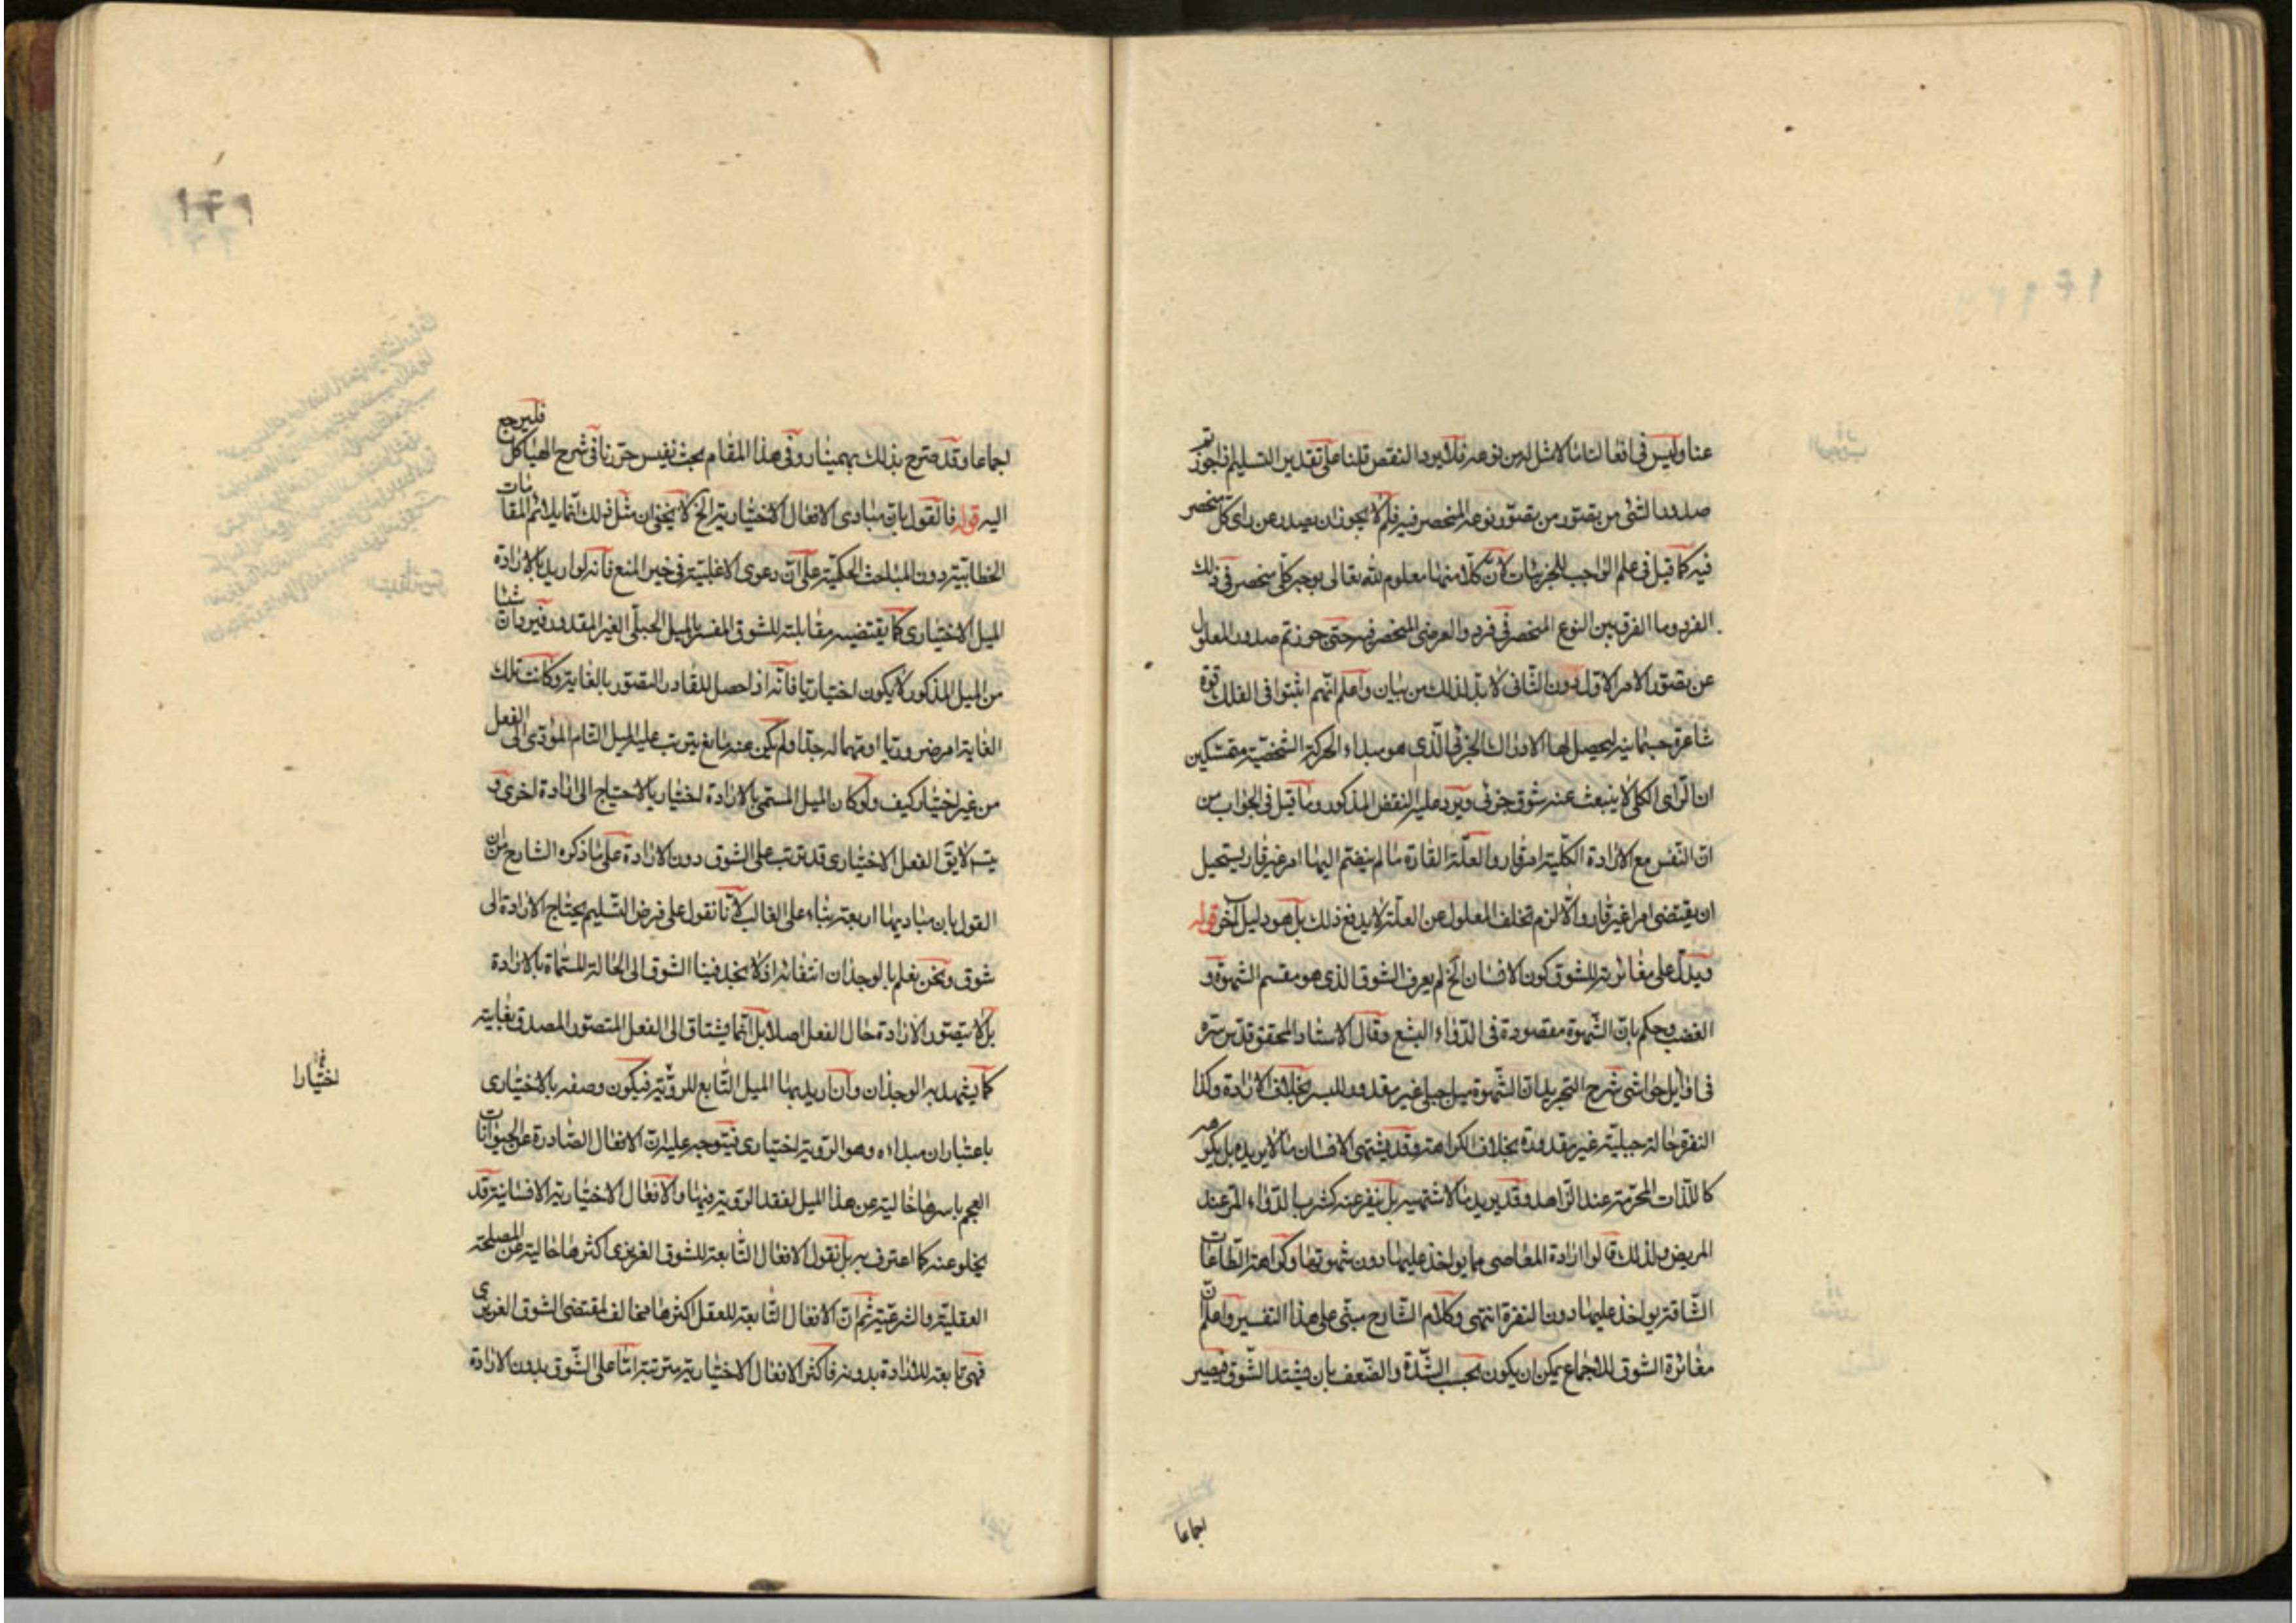 عنا وليس في افعالنا ما لا مثل له من نوعه فلا يرد النقض قلنا على تقدير التسليم اذا جوزتم
صدور الشئ من تصور نوعه المنحصر فيه فلم لا يجوز ان يصدر عن راى كلى منحصر
فيه كما قيل في علم الواجب للجزئيات لان كلا منها معلوم لله تعالى بوجه كلى منحصر في ذلك
الفرد وما الفرق بين النوع المنحصر في فرد والعرضى المنحصر فيه حتى جوزتم صدور المعلول
عن تصور الامر الاول دون الثانى لا بد لذلك من بيان واعلم انهم اثبتوا في الفلك قوة
شاعرة جسمانية ليحصل لها الادراك الجزئى الذي هو مبداء الحركة الشخصية متمسكين
ان الراى الكلى لا ينبعث عنه شوق جزئى ويرد عليه النقض المذكور وما قيل في الجواب من
ان النفس مع الارادة الكلية امر قار والعلة القارة ما لم ينضم اليها امر غير قار يستحيل
ان يقتضى امرا غير قار والا لزم تخلف المعلول عن العلة لا يدفع ذلك بل هو دليل آخر قوله
ويدل على مغائرته للشوق كون الانسان الخ لم يعرف الشوق الذى هو مقسم الشهوة و
الغضب وحكم بان الشهوة مفقودة في الدواء البشع وقال الاستاد المحقق قدس سره
في اوايل حواشى شرح التجريد ان الشهوة ميل جبلى غير مقدور للبشر بخلاف الارادة وكذا
النفرة حالة جبلية غير مقدورة بخلاف الكراهة وقد يشتهى الانسان ما لا يريده بل يكرهه
كاللذات المحرمة عند الزاهد وقد يريد ما لا يشتهيه بل ينفر عنه كشرب الدواء المر عند
المريض ولذلك قالوا ارادة المعاصى مما يواخذ عليها دون شهوتها وكراهة الطاعات
الشاقة يواخذ عليها دون النفرة انتهى وكلام الشارح مبنى على هذا التفسير واعلم ان
مغائرة الشوق للاجماع يمكن ان يكون بحسب الشدة والضعف بان يشتد الشوق فيصير
اجماعا
اجماعا وقد صرح بذلك بهمنيار وفي هذا المقام بحث نفيس حررنا في شرح الهياكل فليرجع
اليه قوله فالقول بان مبادى الافعال الاختيارية الخ لا يخفى ان مثل ذلك انما يلائم المقامات
الخطابية دون المباحث الحكمية على ان دعوى الاغلبية في خير المنع فانه لو اريد بالارادة
الميل الاختيارى كما يقتضيه مقابلته للشوق المفسر بالميل الجبلى الغير المقدور فيه شئا فان
من الميل المذكور لا يكون اختياريا فانه اذا حصل للقادر التصور بالغاية وكانت تلك
الغاية امر ضروريا او مهما له جدا ولم يكن عنه مانع يترتب عليه الميل التام المؤدى الى الفعل
من غير اختيار كيف ولو كان الميل المسمى بالارادة اختياريا لاحتاج الى ارادة اخرى و
يتم لا يق الفعل الاختيارى قد يترتب على الشوق دون الارادة على ما ذكره الشارح من ان
القول بان مباديها اربعة بناء على الغالب لانا نقول على فرض التسليم يحتاج الارادة الى
شوق ونحن نعلم بالوجدان انتفائه اذ لا نجد فينا الشوق الى الحالة المسماة بالارادة
بل لا نتصور الارادة حال الفعل اصلا بل انما نشتاق الى الفعل المتصور المصدق بغايته
كما يشهد به الوجدان وان اريد بها الميل التابع للروية فيكون وصفه بالاختيارى
باعتبار ان مبداءه وهو الروية اختيارى فيتوجه عليه ان الافعال الصادرة عن الحيوانات
العجم باسرها خالية عن هذا الميل لفقد الروية فيها والافعال الاختيارية الانسانية قد
يخلو عنه كما اعترف به بل نقول الافعال التابعة للشوق الغريزى اكثرها خالية عن المصلحة
العقلية والشرعية ثم ان الافعال التابعة للعقل اكثرها مخالف لمقتضى الشوق الغريزى
فهى تابعة للارادة بدونه فاكثر الافعال الاختيارية مترتبة اما على الشوق بدون الارادة
اختيارا